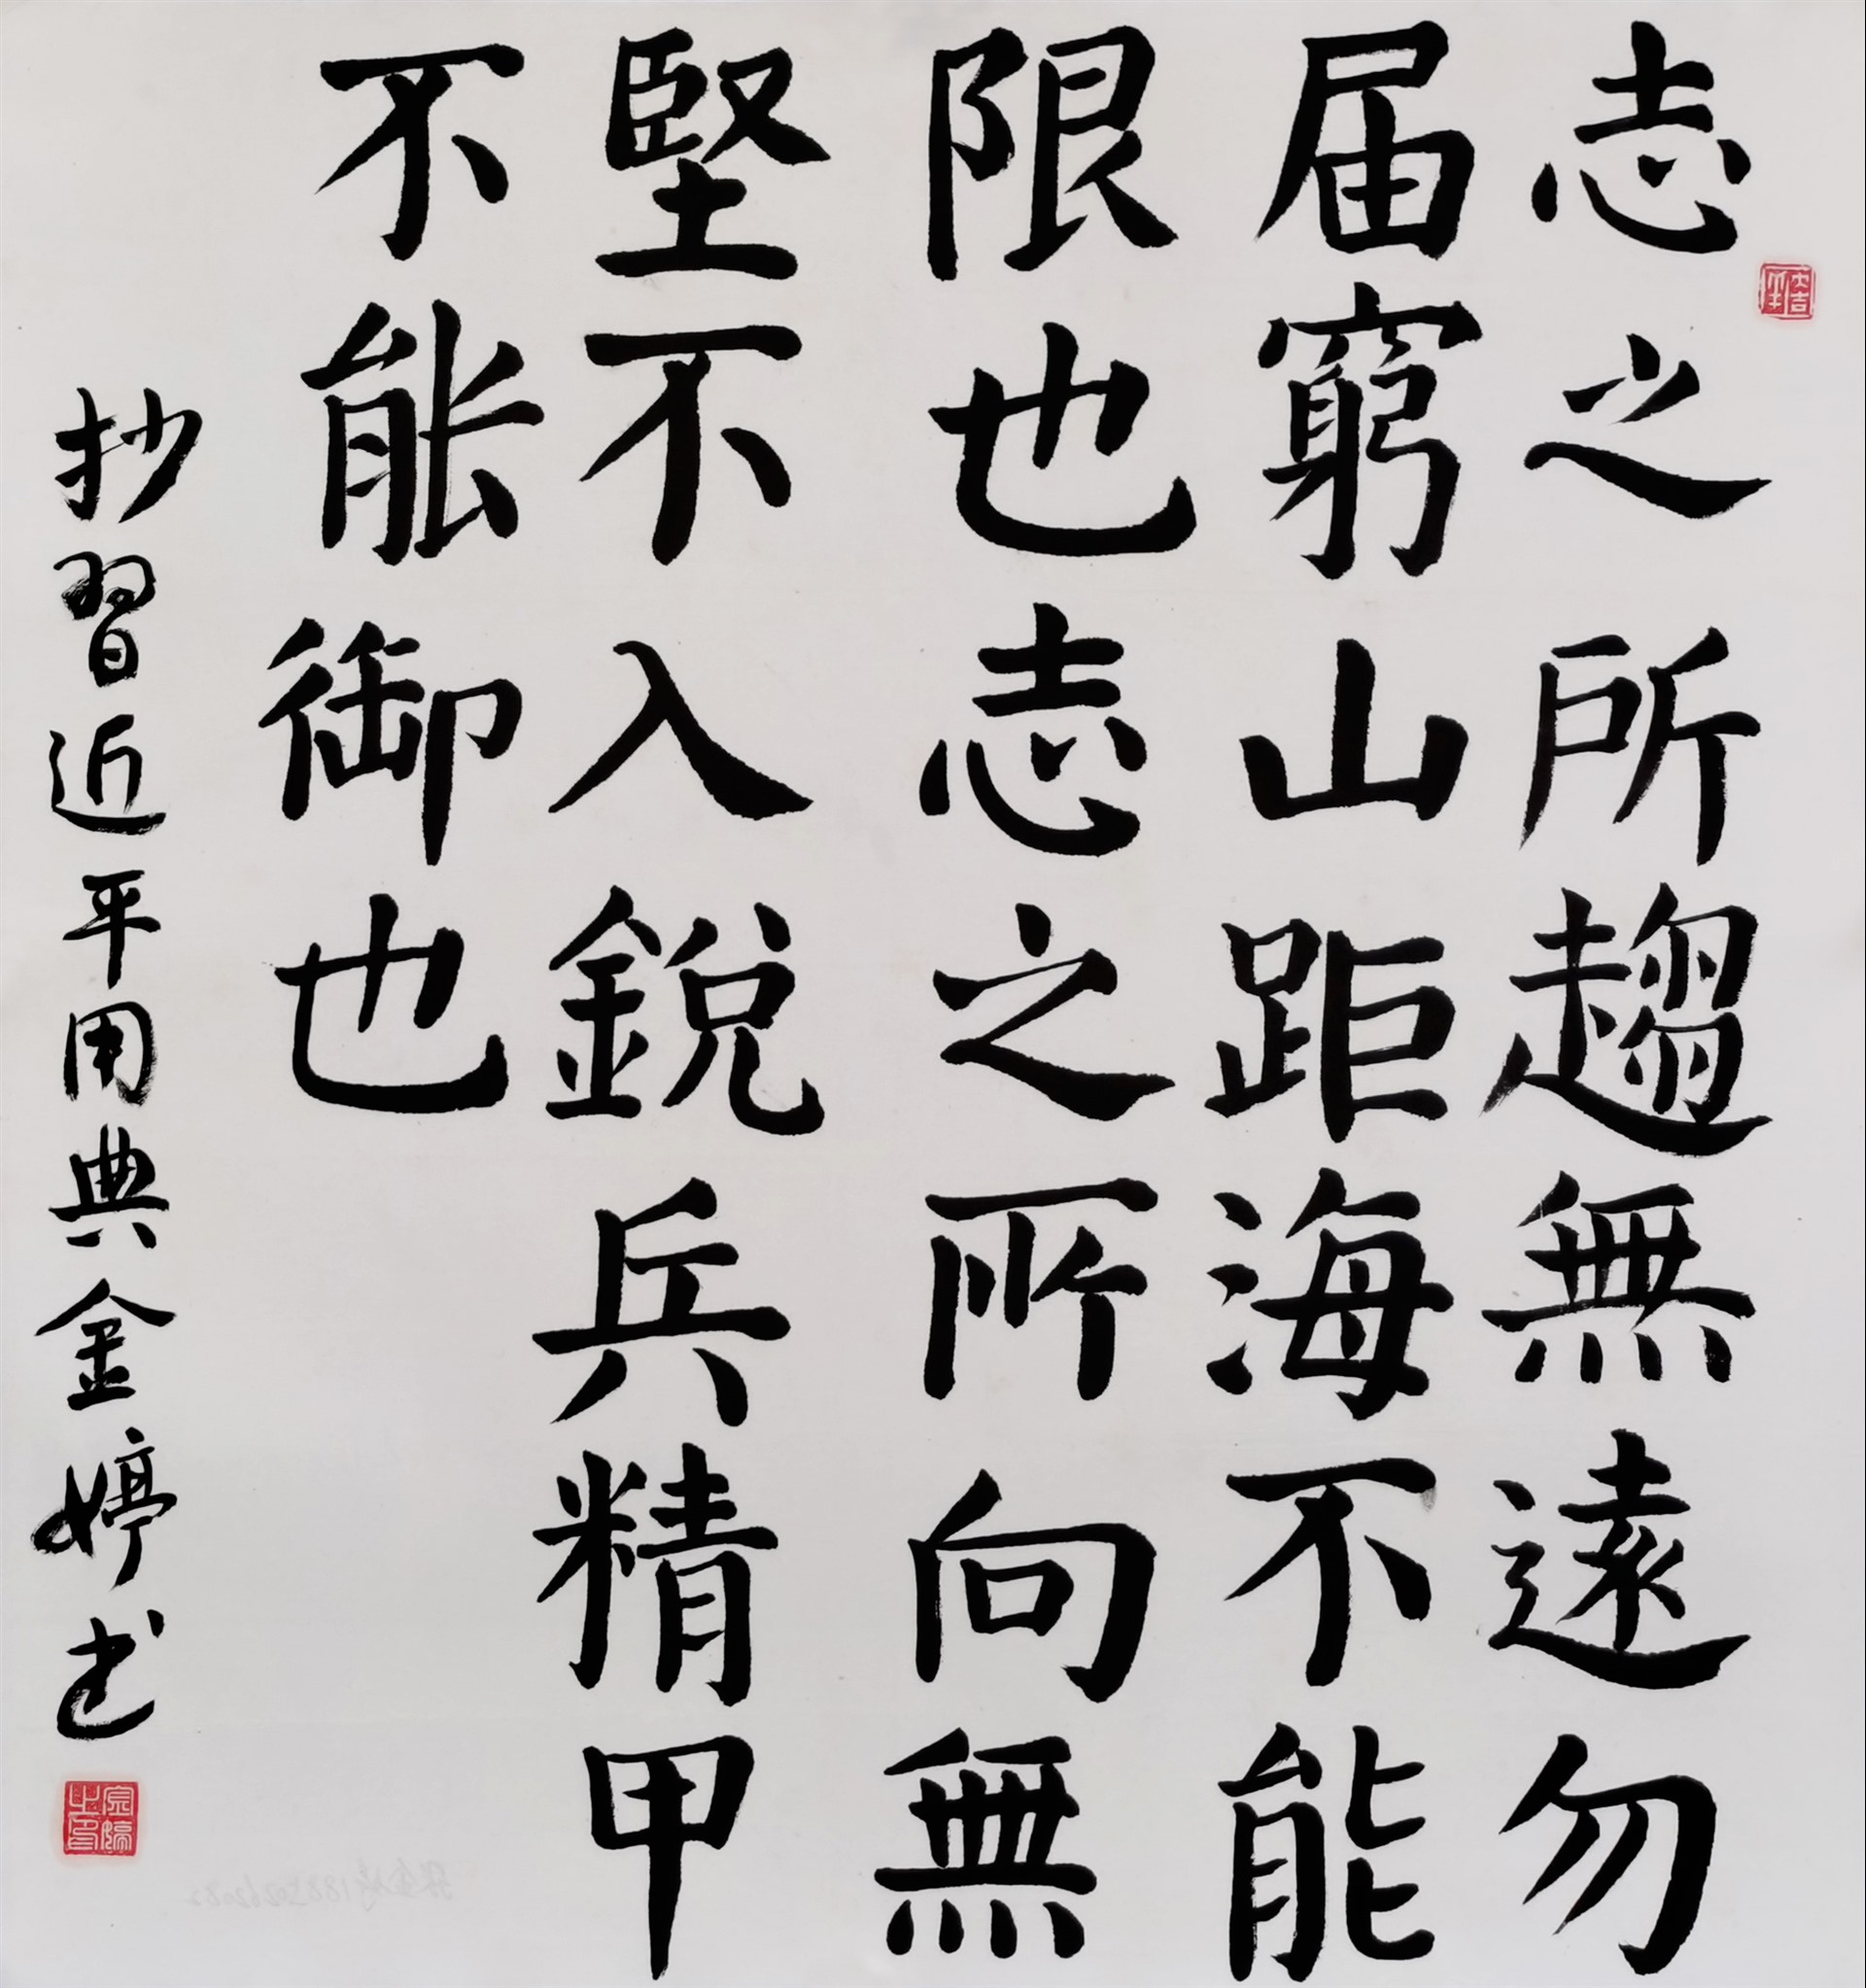 志之所趨無遠勿
届窮山距海不能
限也志之所向無
堅不入銳兵精甲
不能御也
抄習近平用典金婷书